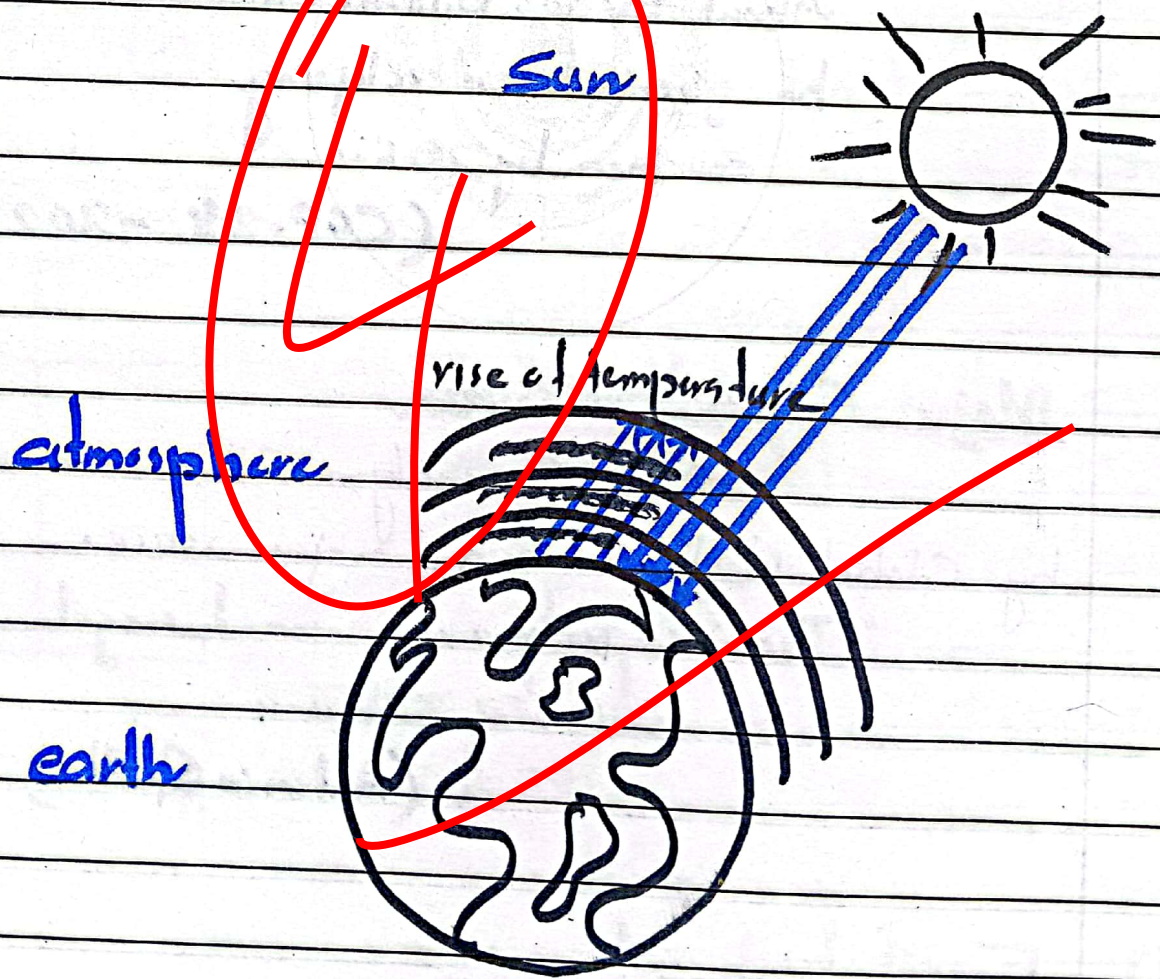 Sun
4
rise of temperature
atmosphere
earth